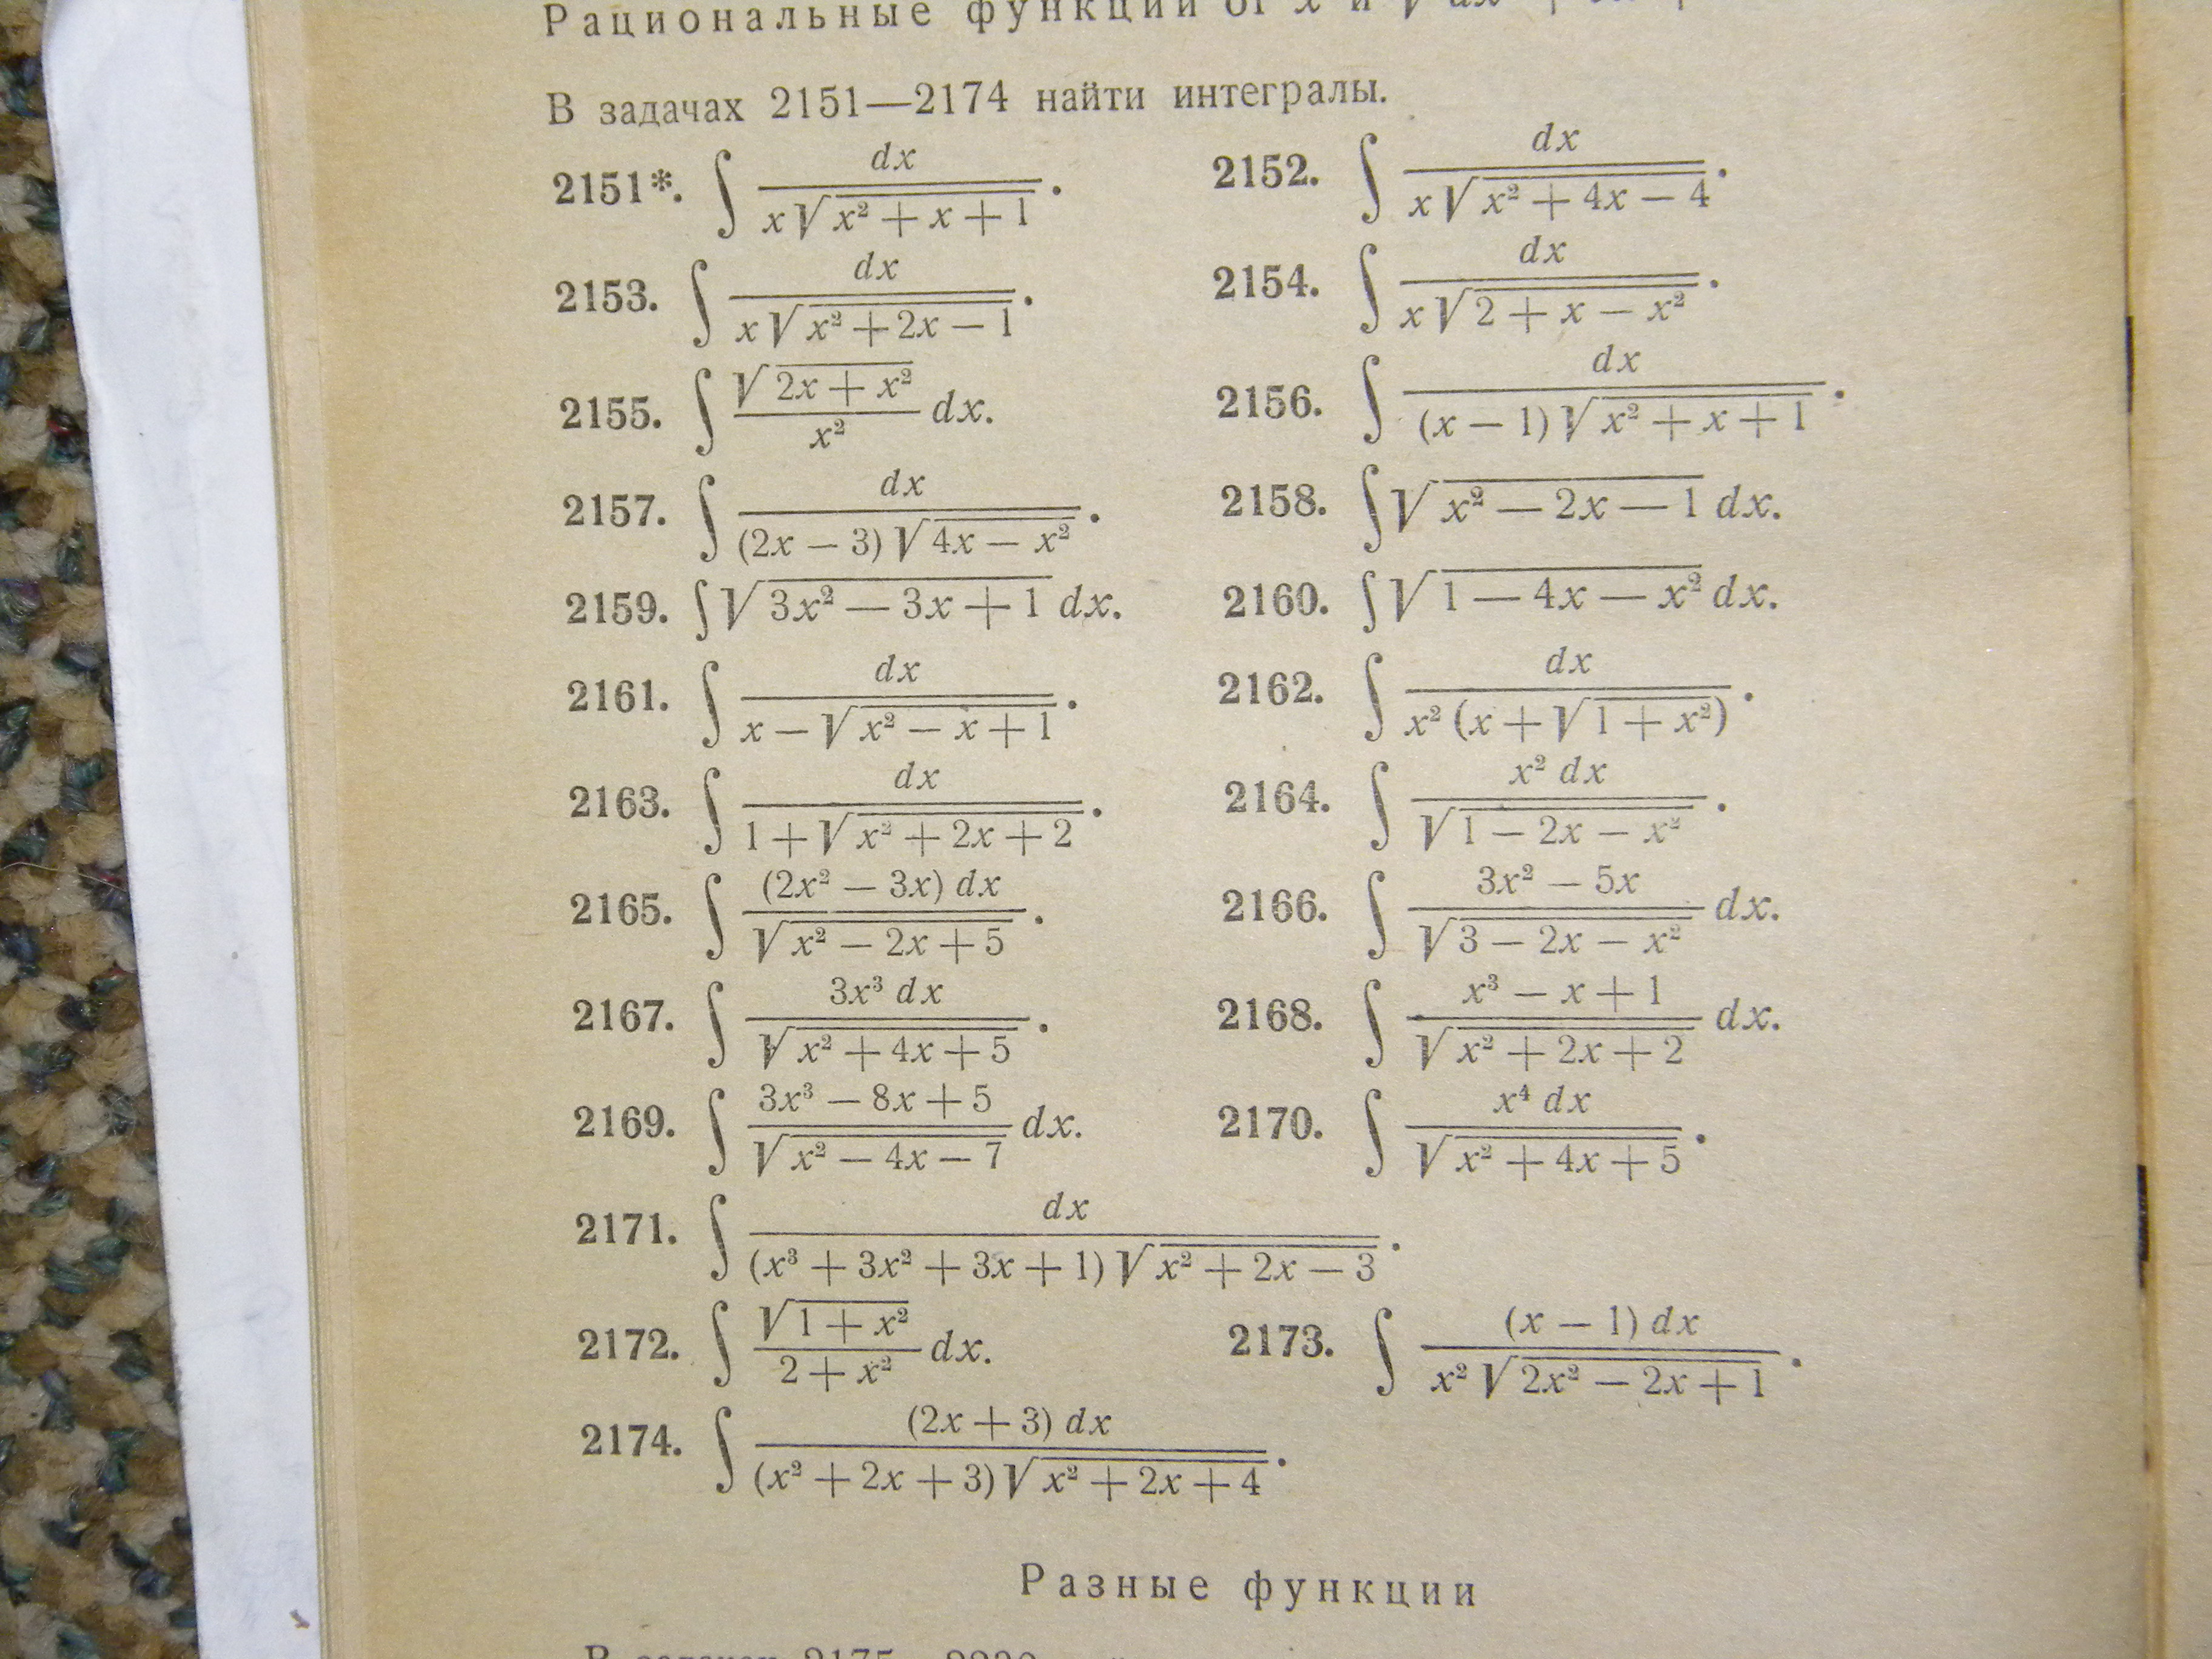 Рациональные функции от x и √ax
В задачах 2151—2174 найти интегралы.
2151*. ∫ dx / (x√(x² + x + 1)). 2152. ∫ dx / (x√(x² + 4x − 4)).
2153. ∫ dx / (x√(x² + 2x − 1)). 2154. ∫ dx / (x√(2 + x − x²)).
2155. ∫ √(2x + x²) / x² dx. 2156. ∫ dx / ((x − 1)√(x² + x + 1)).
2157. ∫ dx / ((2x − 3)√(4x − x²)). 2158. ∫√(x² − 2x − 1) dx.
2159. ∫√(3x² − 3x + 1) dx. 2160. ∫√(1 − 4x − x²) dx.
2161. ∫ dx / (x − √(x² − x + 1)). 2162. ∫ dx / (x² (x + √(1 + x²))).
2163. ∫ dx / (1 + √(x² + 2x + 2)). 2164. ∫ x² dx / √(1 − 2x − x²).
2165. ∫ (2x² − 3x) dx / √(x² − 2x + 5). 2166. ∫ (3x² − 5x) / √(3 − 2x − x²) dx.
2167. ∫ 3x³ dx / √(x² + 4x + 5). 2168. ∫ (x³ − x + 1) / √(x² + 2x + 2) dx.
2169. ∫ (3x³ − 8x + 5) / √(x² − 4x − 7) dx. 2170. ∫ x⁴ dx / √(x² + 4x + 5).
2171. ∫ dx / ((x³ + 3x² + 3x + 1)√(x² + 2x − 3)).
2172. ∫ √(1 + x²) / (2 + x²) dx. 2173. ∫ (x − 1) dx / (x²√(2x² − 2x + 1)).
2174. ∫ (2x + 3) dx / ((x² + 2x + 3)√(x² + 2x + 4)).
Разные функции